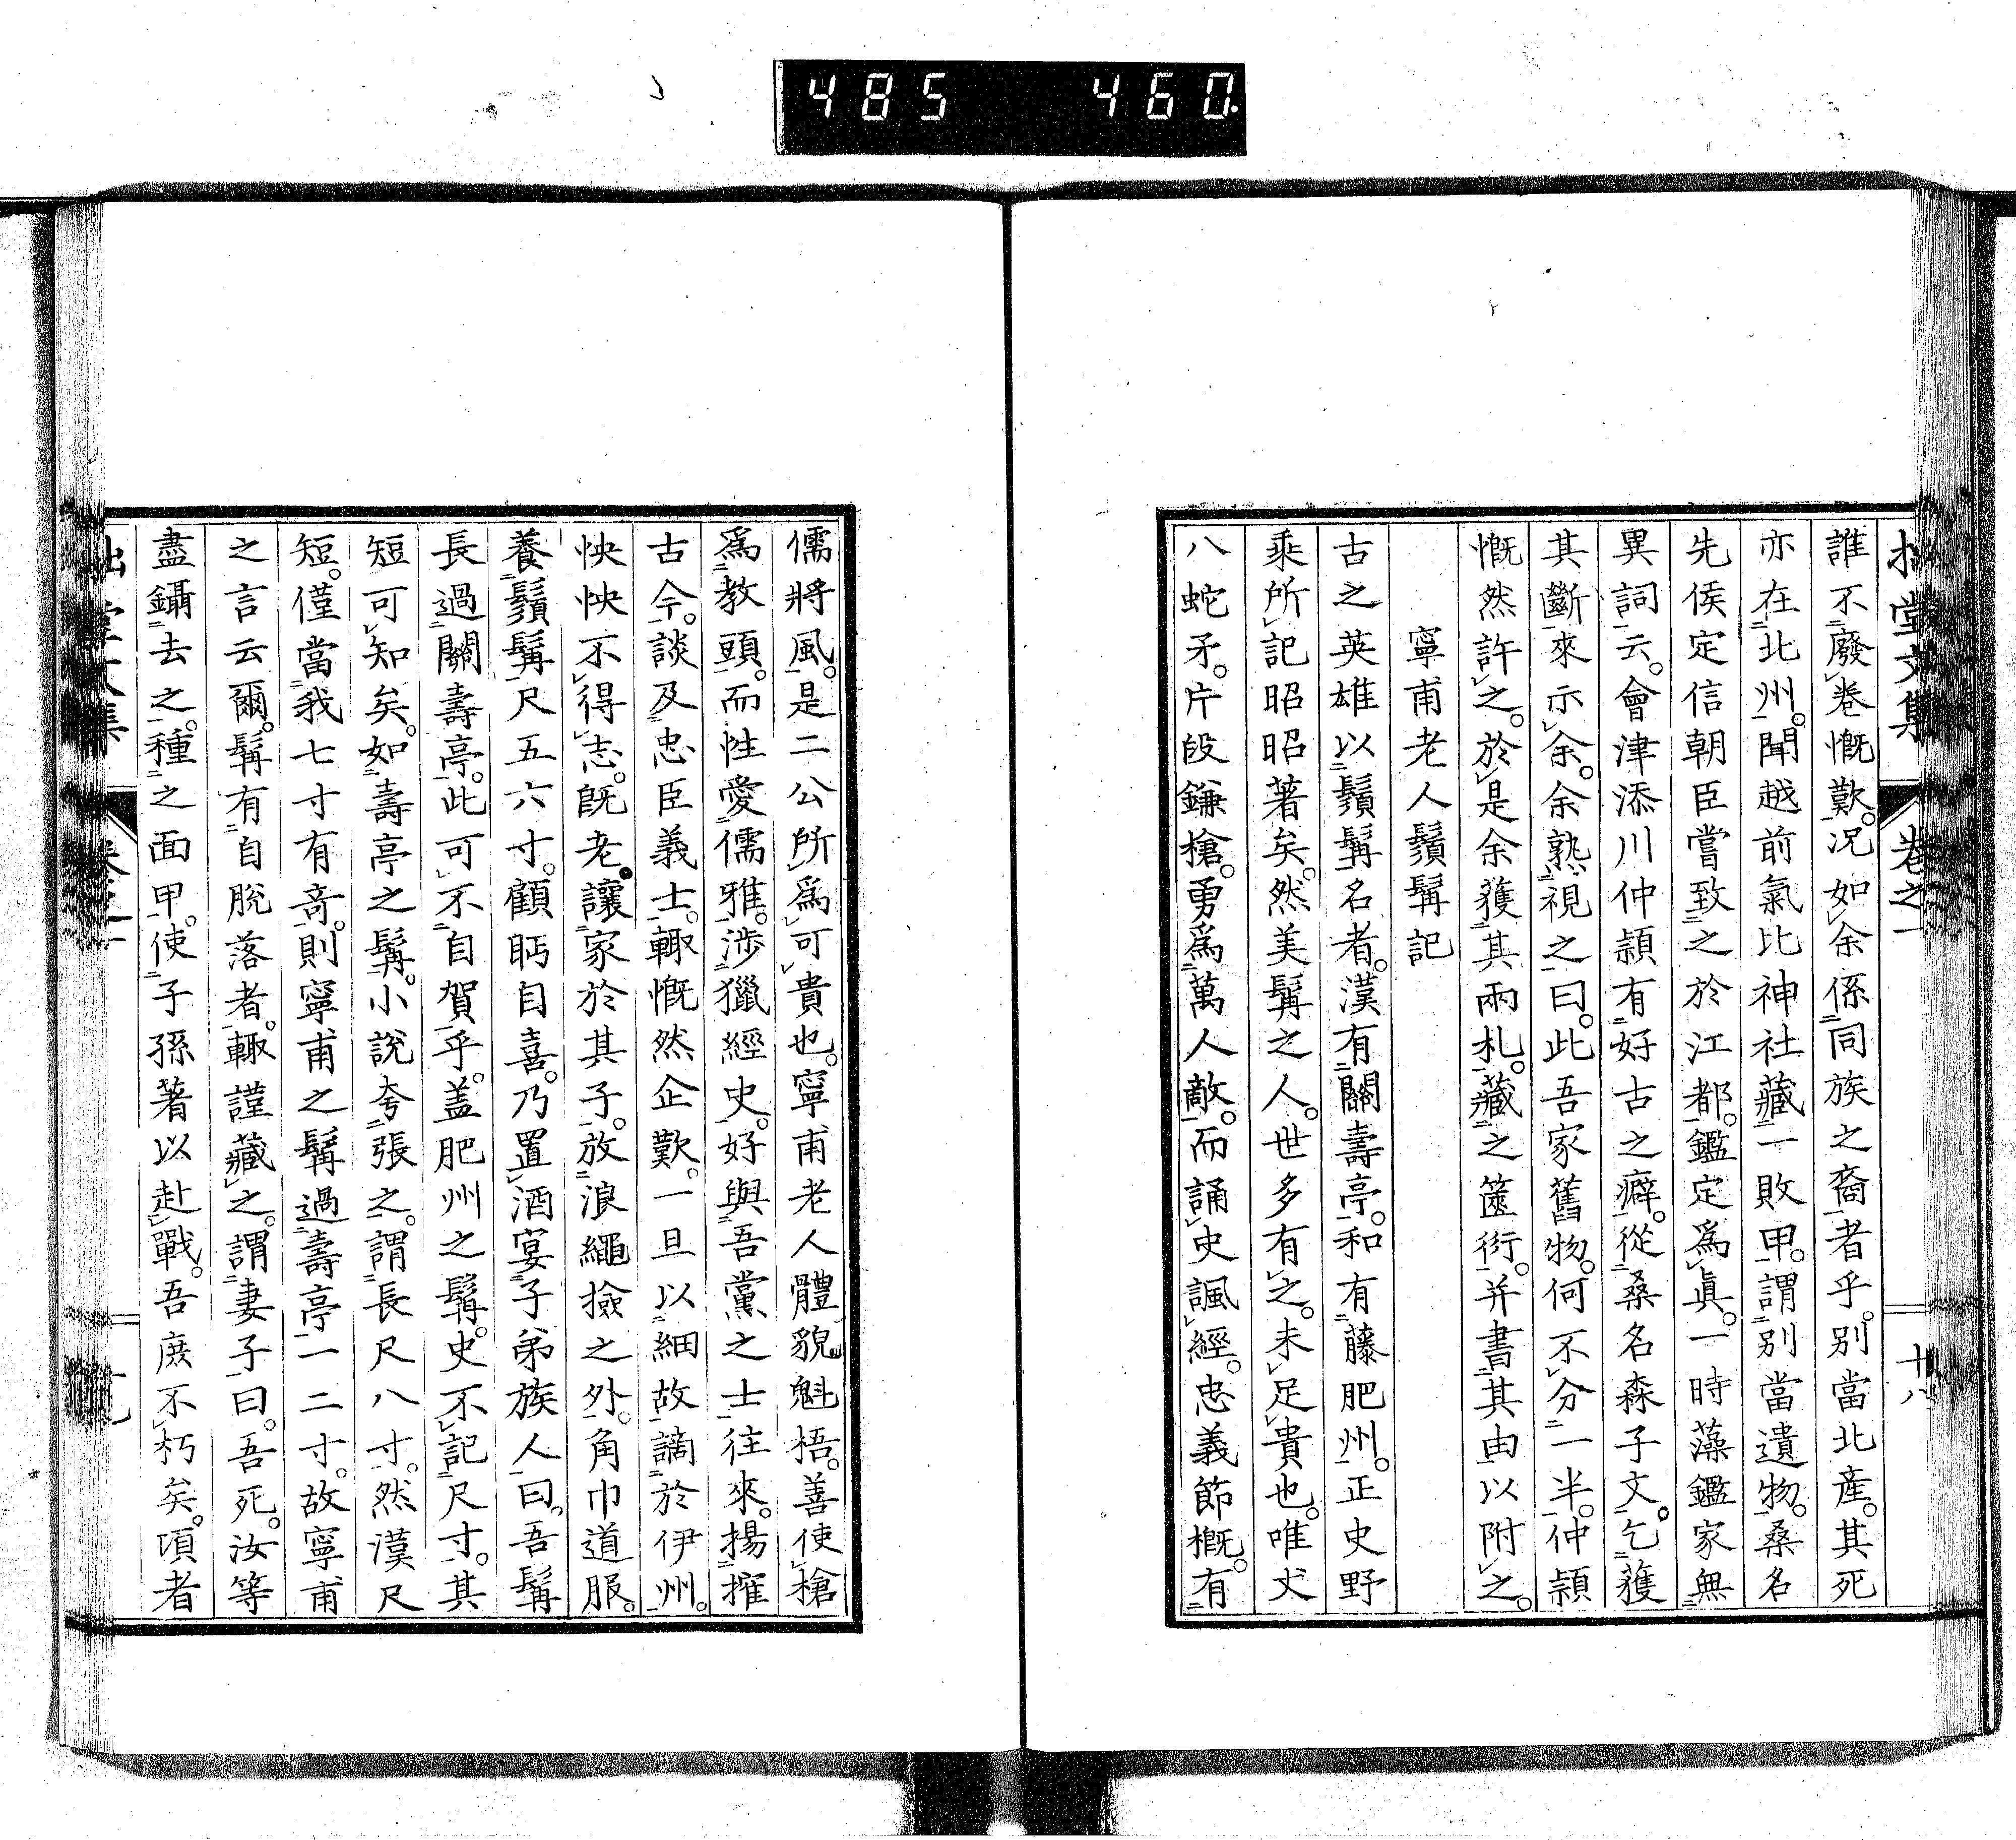 485 460.
拙堂文集 卷之一 十八
誰不廢卷慨歎。況如余係同族之裔者乎。別當北產。其死
亦在北州。聞越前氣比神社藏一敗甲。謂別當遺物。桑名
先侯定信朝臣嘗致之於江都。鑑定爲眞。一時藻鑑家無
異詞云。會津添川仲頴有好古之癖。從桑名森子文。乞獲
其斷來示余。余熟視之曰。此吾家舊物。何不分一半。仲頴
慨然許之。於是余獲其兩札。藏之篋衍。并書其由以附之。
寧甫老人鬚髯記
古之英雄以鬚髯名者。漢有關壽亭。和有藤肥州。正史野
乘所記昭昭著矣。然美髯之人。世多有之。未足貴也。唯丈
八蛇矛。片段鎌槍。勇爲萬人敵。而誦史諷經。忠義節概。有
儒將風。是二公所爲可貴也。寧甫老人體貌魁梧。善使槍
爲教頭。而性愛儒雅。涉獵經史。好與吾黨之士往來。揚搉
古今。談及忠臣義士。輙慨然企歎。一旦以細故謫於伊州。
怏怏不得志。旣老。讓家於其子。放浪繩撿之外。角巾道服。
養鬚髯尺五六寸。顧眄自喜。乃置酒宴子弟族人曰。吾髯
長過關壽亭。此可不自賀乎。盖肥州之髯。史不記尺寸。其
短可知矣。如壽亭之髯。小說夸張之。謂長尺八寸。然漢尺
短。僅當我七寸有奇。則寧甫之髯過壽亭一二寸。故寧甫
之言云爾。髯有自脫落者。輙謹藏之。謂妻子曰。吾死。汝等
盡鑷去之。種之面甲。使子孫著以赴戰。吾庶不朽矣。項者